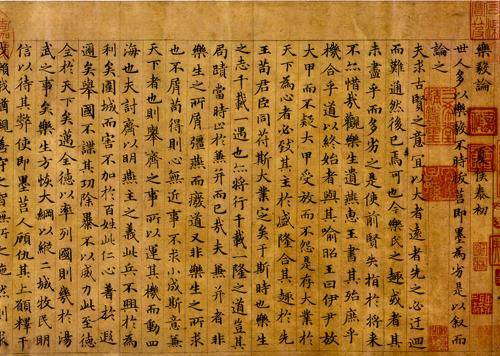 樂毅論 夏侯泰初
世人多以樂毅不時拔莒即墨為劣是以叙而
論之
夫求古賢之意宜以大者遠者先之必迂迴
而難通然後已焉可也今樂氏之趣或者其
未盡乎而多劣之是使前賢失指於將來
不亦惜哉觀樂生遺燕惠王書其殆庶乎
機合乎道以終始者與其喻昭王曰伊尹放
大甲而不疑大甲受放而不怨是存大業於
天下為心者必致其主於盛隆合其趣於先
王苟君臣同符斯大業定矣于斯時也樂生
之志千載一遇也亦將行千載一隆之道豈其
局蹟當時止於兼并而已哉夫兼并者非
樂生之所屑彊燕而廢道又非樂生之所求
也不屑苟得則心無近事不求小成斯意兼
天下者也則舉齊之事所以運其機而動四
海也夫討齊以明燕主之義此兵不興於為
利矣圍城而害不加於百姓此仁心著於遐
邇矣舉國不謀其功除暴不以威力此至德
全於天下矣邁全德以率列國則幾於湯
武之事矣樂生方恢大綱以縱二城牧民明
信以待其弊使即墨莒人顧仇其上願釋干